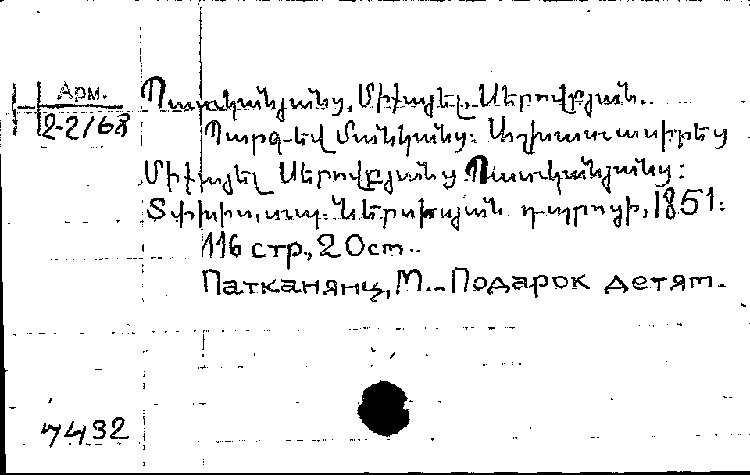 Арм.
2-2168
Պատկանյանց, Միքայել Սերովբյան.
Պարգև մանկանց: Աշխատասիրեց
Միքայել Սերովբյանց Պատկանյանց:
Տփխիս, տպ. Ներսիսյան դպրոցի, 1851:
116 стр., 20 cm.
Патканянц, М. - Подарок детям.
7432